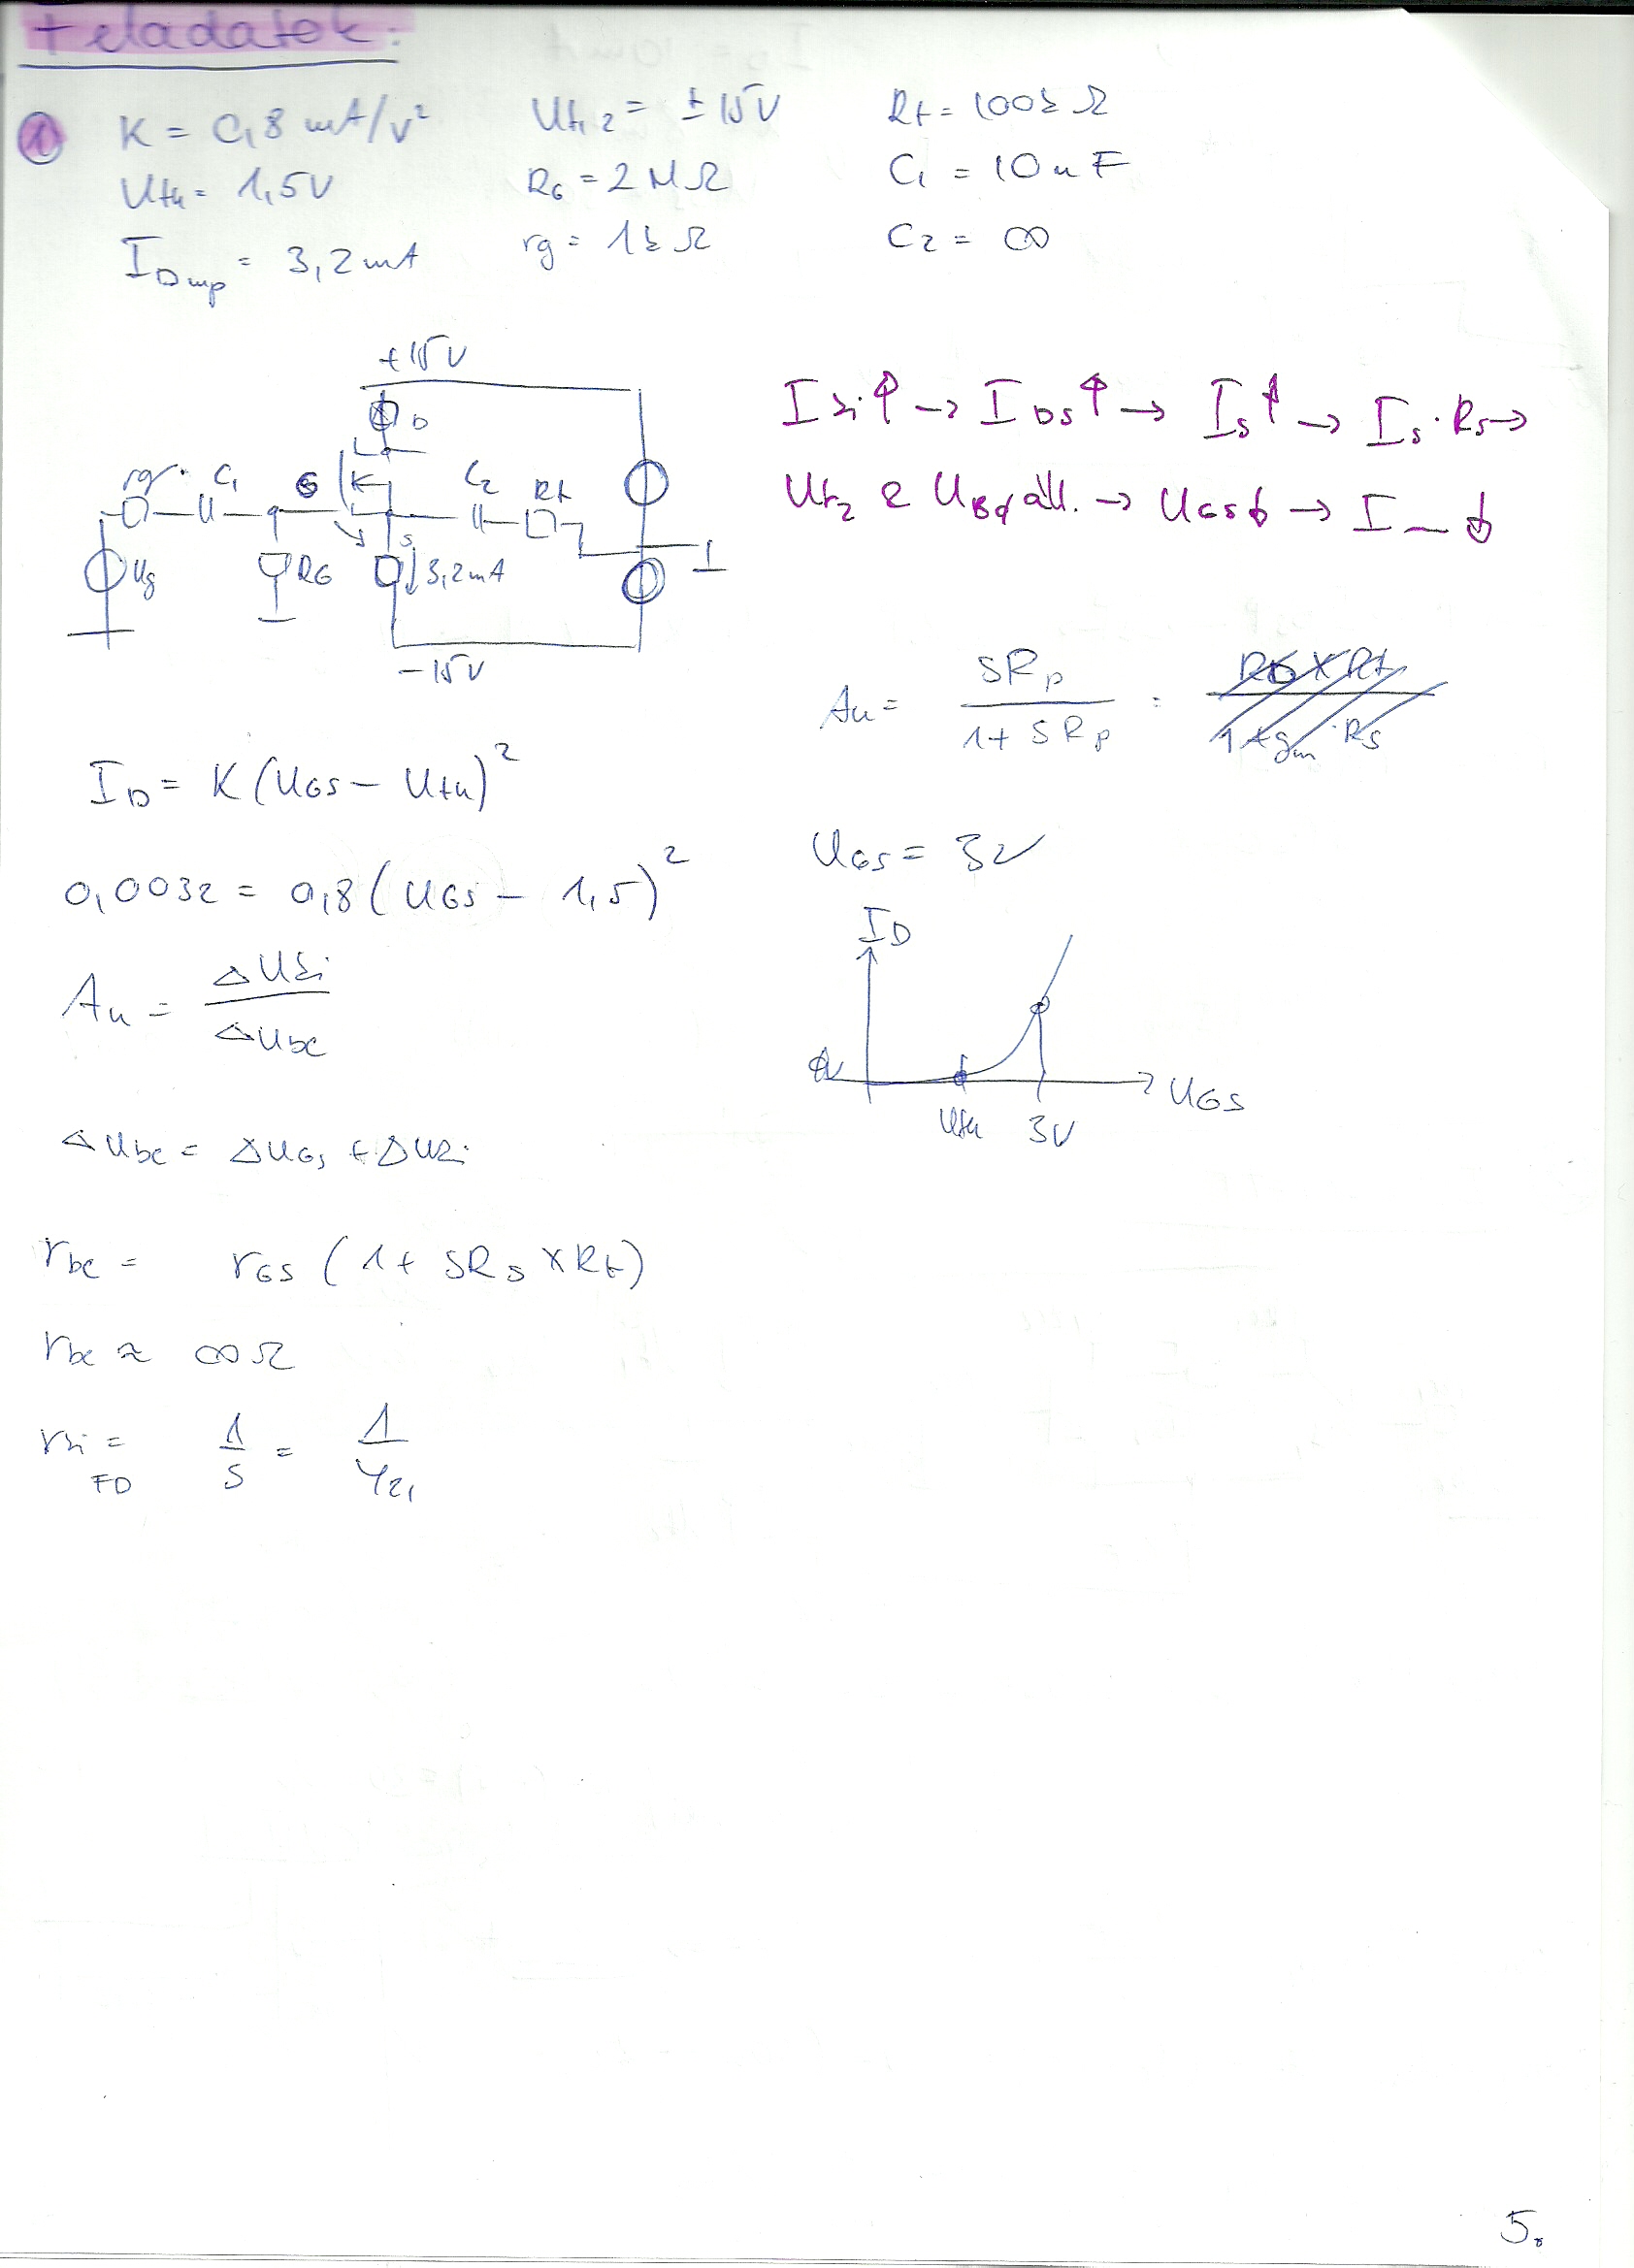 Feladatok:
① K = 0,8 mA/V²
Uth = 1,5V
IDmp = 3,2mA
Ut1,2 = ±15V
RG = 2MΩ
rg = 1kΩ
Rt = 100kΩ
C1 = 10nF
C2 = ∞
+15V
D
rg C1 G C2 Rt
Ug RG S 3,2mA
-15V
Iki↑ → IDS↑ → IS↑ → IS·RS →
UGS↓ → I_↓
Au = SRp / (1 + SRp) =
ID = K(UGS - Uth)²
UGS = 3V
0,0032 = 0,8(UGS - 1,5)²
Au = ΔUki / ΔUbe
ID
UGS
Uth 3V
ΔUbe = ΔUGS + ΔUki
rbe = rGS (1 + SRS × Rt)
rbe ≈ ∞Ω
rki FD = 1/S = 1/Y21
5.